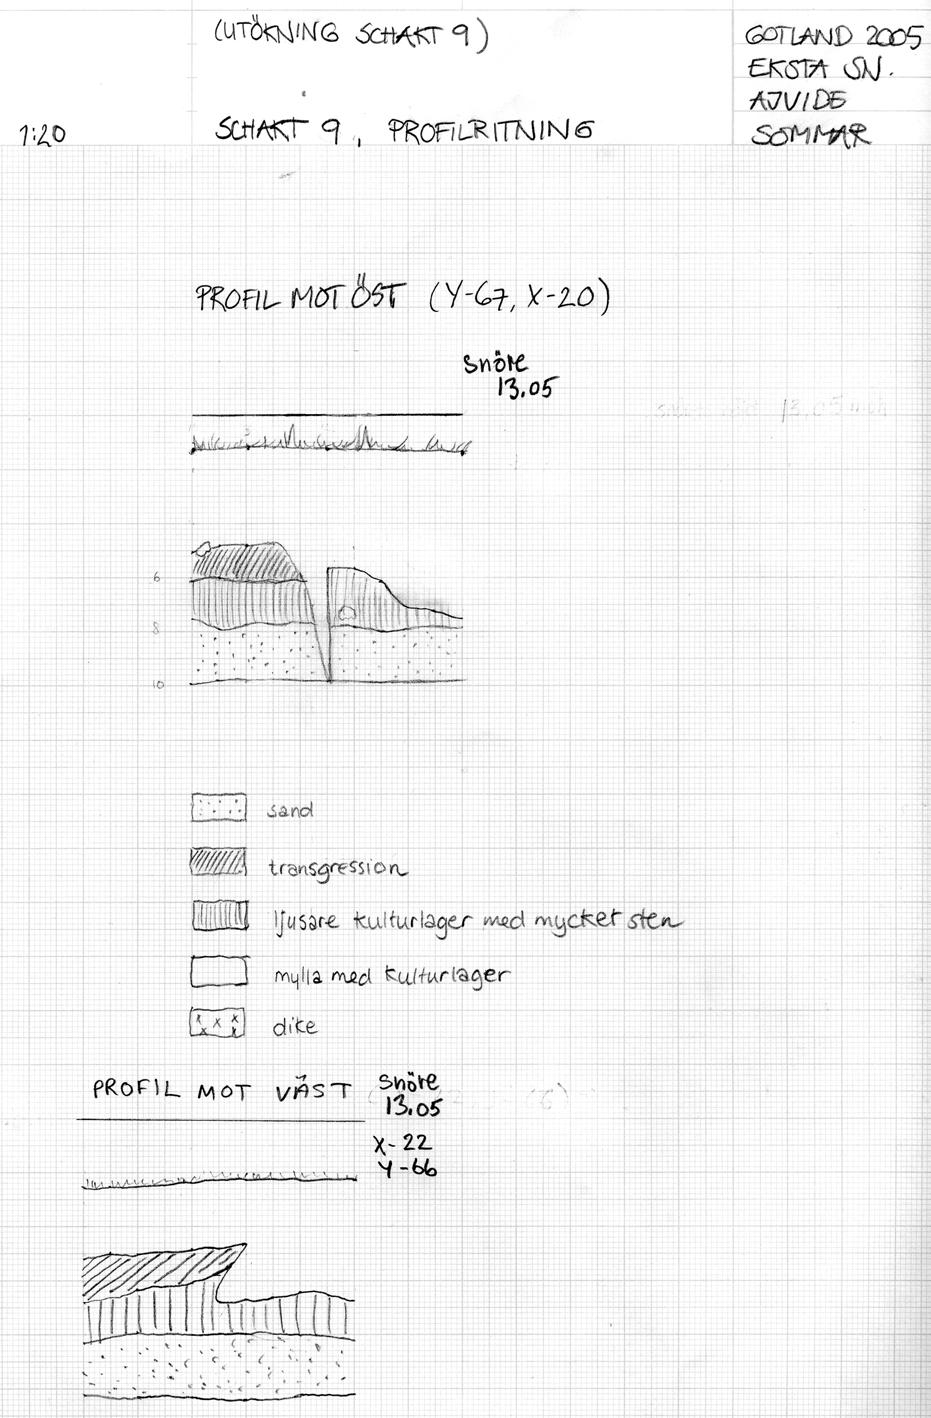 (UTÖKNING SCHAKT 9)
GOTLAND 2005
EKSTA SN.
AJVIDE
SOMMAR
1:20
SCHAKT 9, PROFILRITNING
PROFIL MOT ÖST (Y-67, X-20)
snöre
13.05
6
8
10
sand
transgression
ljusare kulturlager med mycket sten
mylla med kulturlager
dike
PROFIL MOT VÄST
snöre
13.05
X-22
Y-66